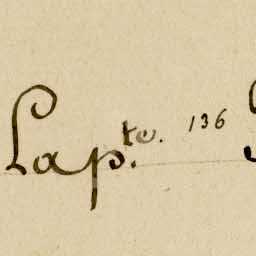 Lap.te. 136